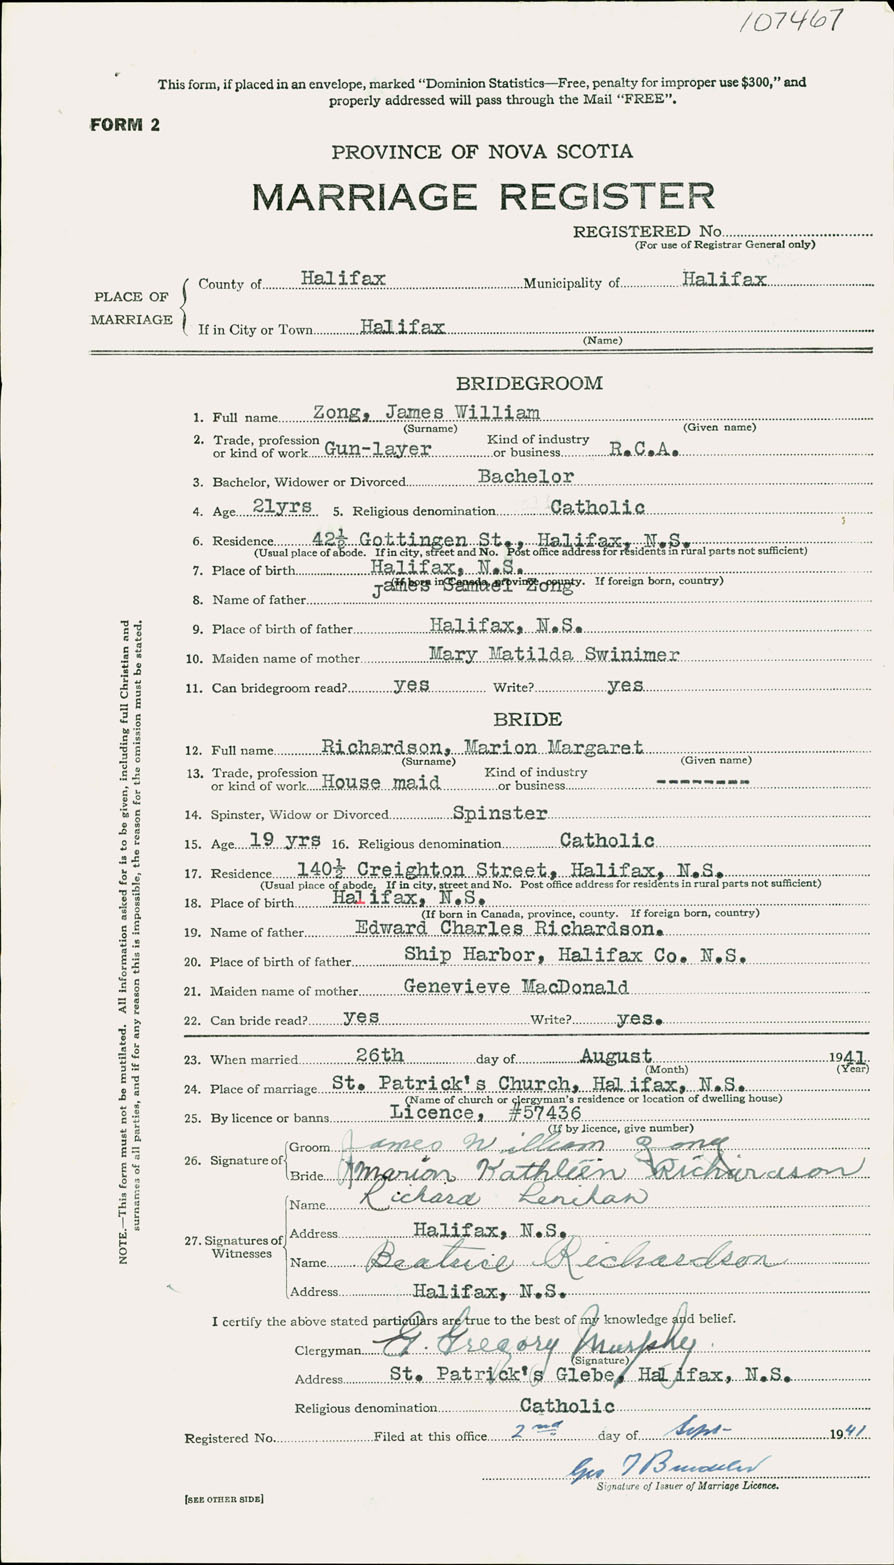 107467
This form, if placed in an envelope, marked “Dominion Statistics—Free, penalty for improper use $300,” and
properly addressed will pass through the Mail “FREE”.
FORM 2
PROVINCE OF NOVA SCOTIA
MARRIAGE REGISTER
REGISTERED No.
(For use of Registrar General only)
PLACE OF MARRIAGE
County of Halifax Municipality of Halifax
If in City or Town Halifax
(Name)
BRIDEGROOM
1. Full name Zong, James William
(Surname) (Given name)
2. Trade, profession or kind of work Gun-layer Kind of industry or business R.C.A.
3. Bachelor, Widower or Divorced Bachelor
4. Age 21yrs 5. Religious denomination Catholic
6. Residence 42½ Gottingen St., Halifax, N.S.
(Usual place of abode. If in city, street and No. Post office address for residents in rural parts not sufficient)
7. Place of birth Halifax, N.S.
(If born in Canada, province, county. If foreign born, country)
8. Name of father James Samuel Zong
9. Place of birth of father Halifax, N.S.
10. Maiden name of mother Mary Matilda Swinimer
11. Can bridegroom read? yes Write? yes
BRIDE
12. Full name Richardson, Marion Margaret
(Surname) (Given name)
13. Trade, profession or kind of work House maid Kind of industry or business --------
14. Spinster, Widow or Divorced Spinster
15. Age 19 yrs 16. Religious denomination Catholic
17. Residence 140½ Creighton Street, Halifax, N.S.
(Usual place of abode. If in city, street and No. Post office address for residents in rural parts not sufficient)
18. Place of birth Halifax, N.S.
(If born in Canada, province, county. If foreign born, country)
19. Name of father Edward Charles Richardson.
20. Place of birth of father Ship Harbor, Halifax Co. N.S.
21. Maiden name of mother Genevieve MacDonald
22. Can bride read? yes Write? yes.
23. When married 26th day of August 1941
(Month) (Year)
24. Place of marriage St. Patrick's Church, Halifax, N.S.
(Name of church or clergyman's residence or location of dwelling house)
25. By licence or banns Licence, #57436
(If by licence, give number)
26. Signature of
Groom James William Zong
Bride Marion Kathleen Richardson
27. Signatures of Witnesses
Name Richard Lenihan
Address Halifax, N.S.
Name Beatrice Richardson
Address Halifax, N.S.
I certify the above stated particulars are true to the best of my knowledge and belief.
Clergyman G. Gregory Murphy
(Signature)
Address St. Patrick's Glebe, Halifax, N.S.
Religious denomination Catholic
Registered No. Filed at this office 2nd day of Sept- 1941
Geo
Signature of Issuer of Marriage Licence.
[SEE OTHER SIDE]
NOTE.—This form must not be mutilated. All information asked for is to be given, including full Christian and
surnames of all parties, and if for any reason this is impossible, the reason for the omission must be stated.